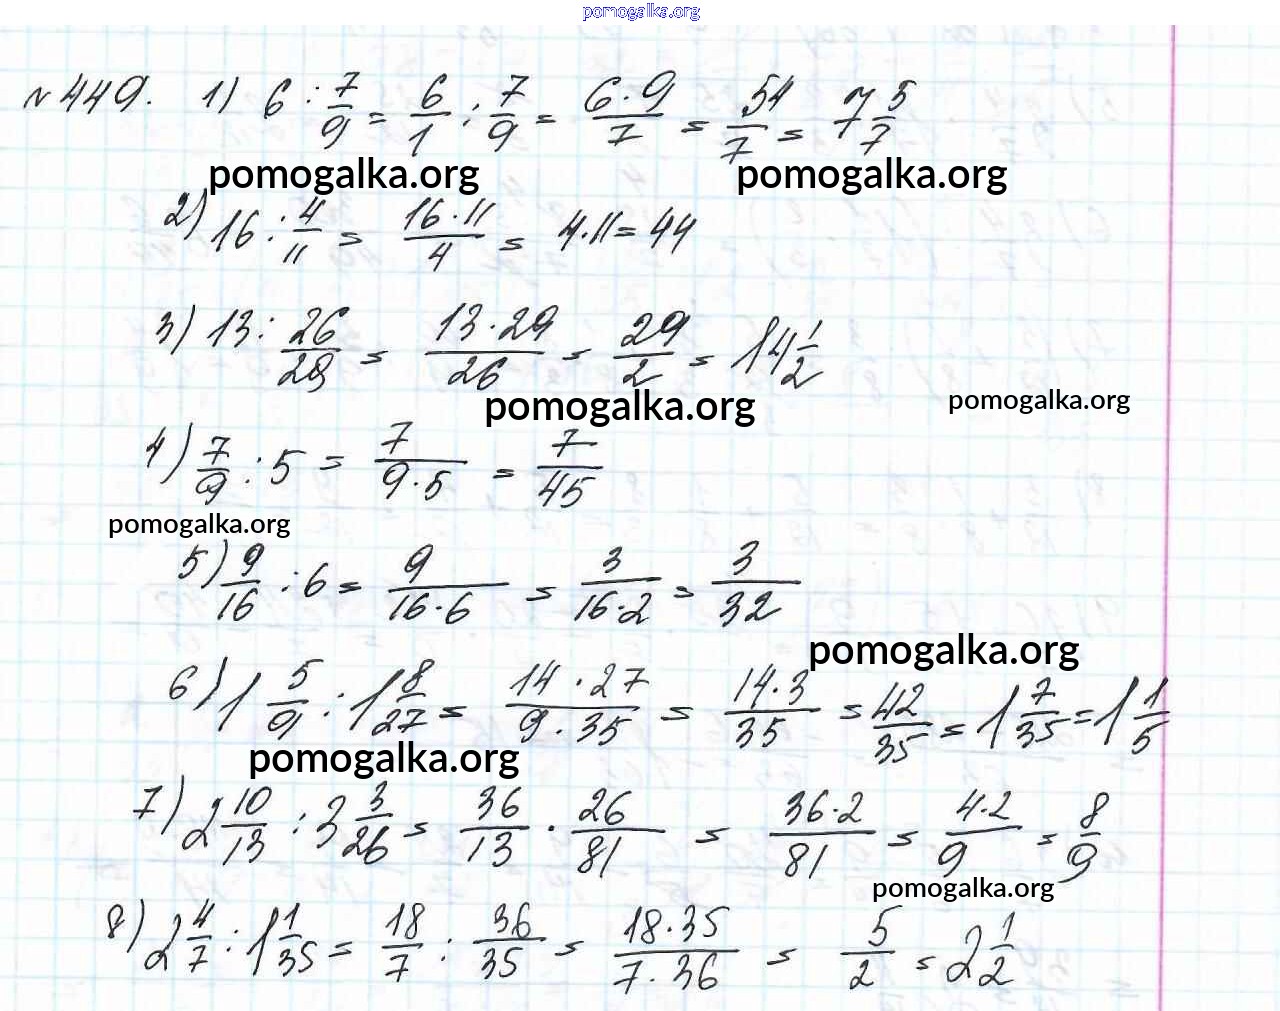 pomogalka.org
№449. 1) 6 : 7/9 = 6/1 : 7/9 = 6·9/7 = 54/7 = 7 5/7
pomogalka.org pomogalka.org
2) 16 : 4/11 = 16·11/4 = 4·11 = 44
3) 13 : 26/29 = 13·29/26 = 29/2 = 14 1/2
pomogalka.org pomogalka.org
4) 7/9 : 5 = 7/9·5 = 7/45
pomogalka.org
5) 9/16 : 6 = 9/16·6 = 3/16·2 = 3/32
pomogalka.org
6) 1 5/9 : 1 8/27 = 14·27/9·35 = 14·3/35 = 42/35 = 1 7/35 = 1 1/5
pomogalka.org
7) 2 10/13 : 3 3/26 = 36/13 · 26/81 = 36·2/81 = 4·2/9 = 8/9
pomogalka.org
8) 2 4/7 : 1 1/35 = 18/7 : 36/35 = 18·35/7·36 = 5/2 = 2 1/2